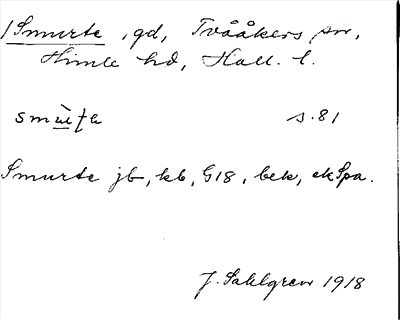 /Smurte, gd, Tvååkers sn,
Himle hd, Hall. l.
s. 81
Smurte jb, kb, G18, bek, ekSpa.
J. Sahlgren 1918